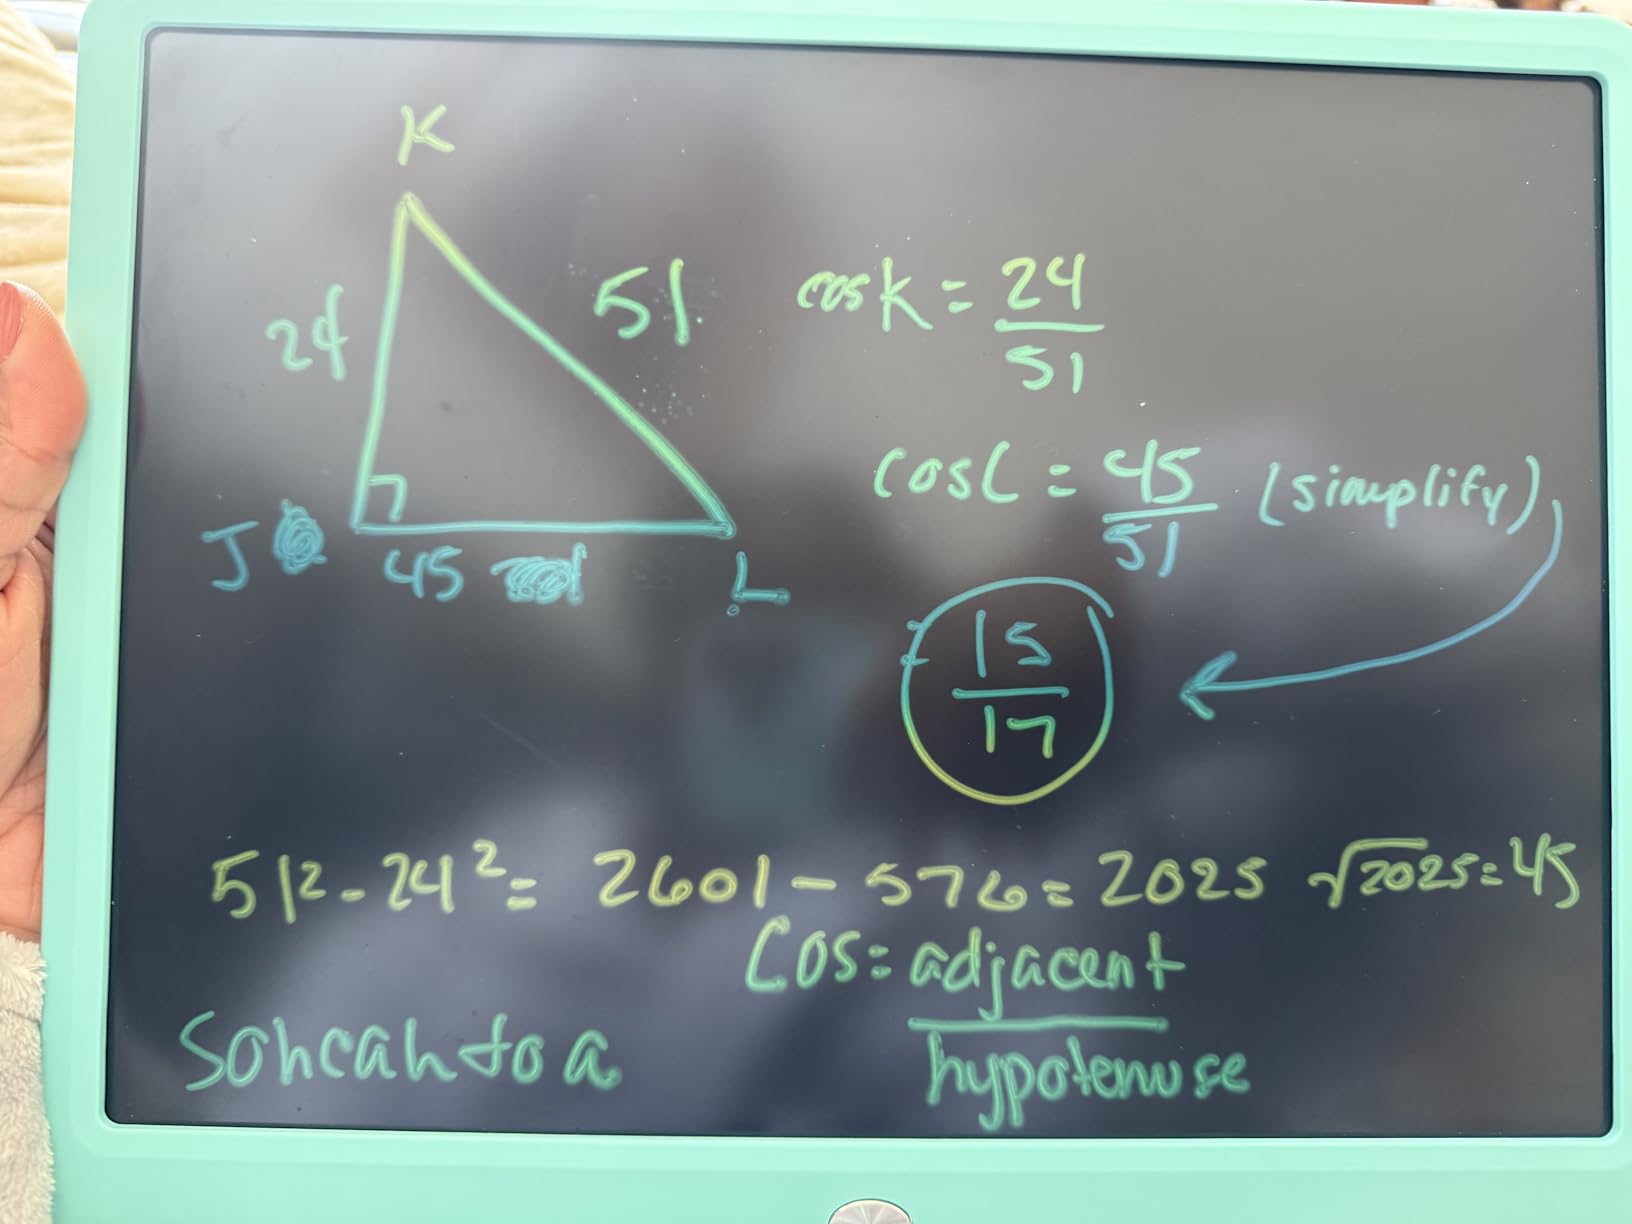 K
24
51
cos K = 24/51
cos L = 45/51 (simplify)
J
45
L
= 15/17
51² - 24² = 2601 - 576 = 2025 √2025 = 45
Cos = adjacent/hypotenuse
Sohcahtoa